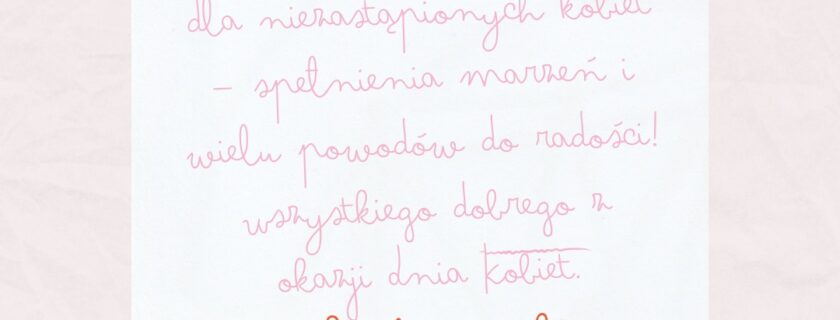 dla niezastąpionych kobiet
– spełnienia marzeń i
wielu powodów do radości!
wszystkiego dobrego z
okazji dnia kobiet.